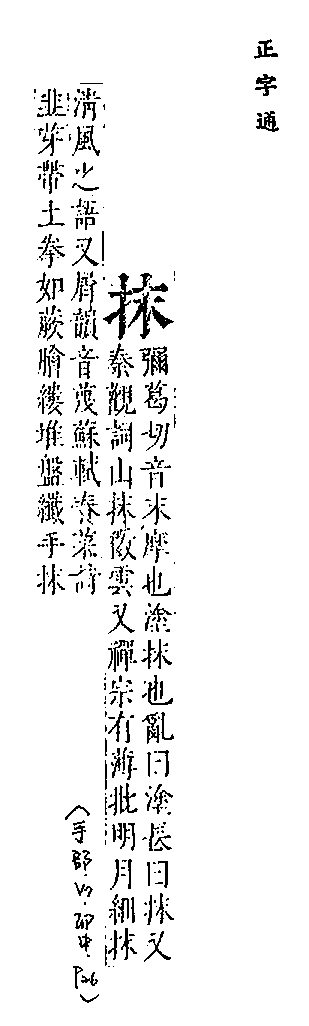 正字通
抹
彌葛切音末摩也塗抹也亂曰塗長曰抹又
秦觀詞山抹微雲又禪宗有薄批明月細抹
淸風之語又屑韻音蔑蘇軾春菜詩
韭芽帶土拳如蕨膾縷堆盤纖手抹